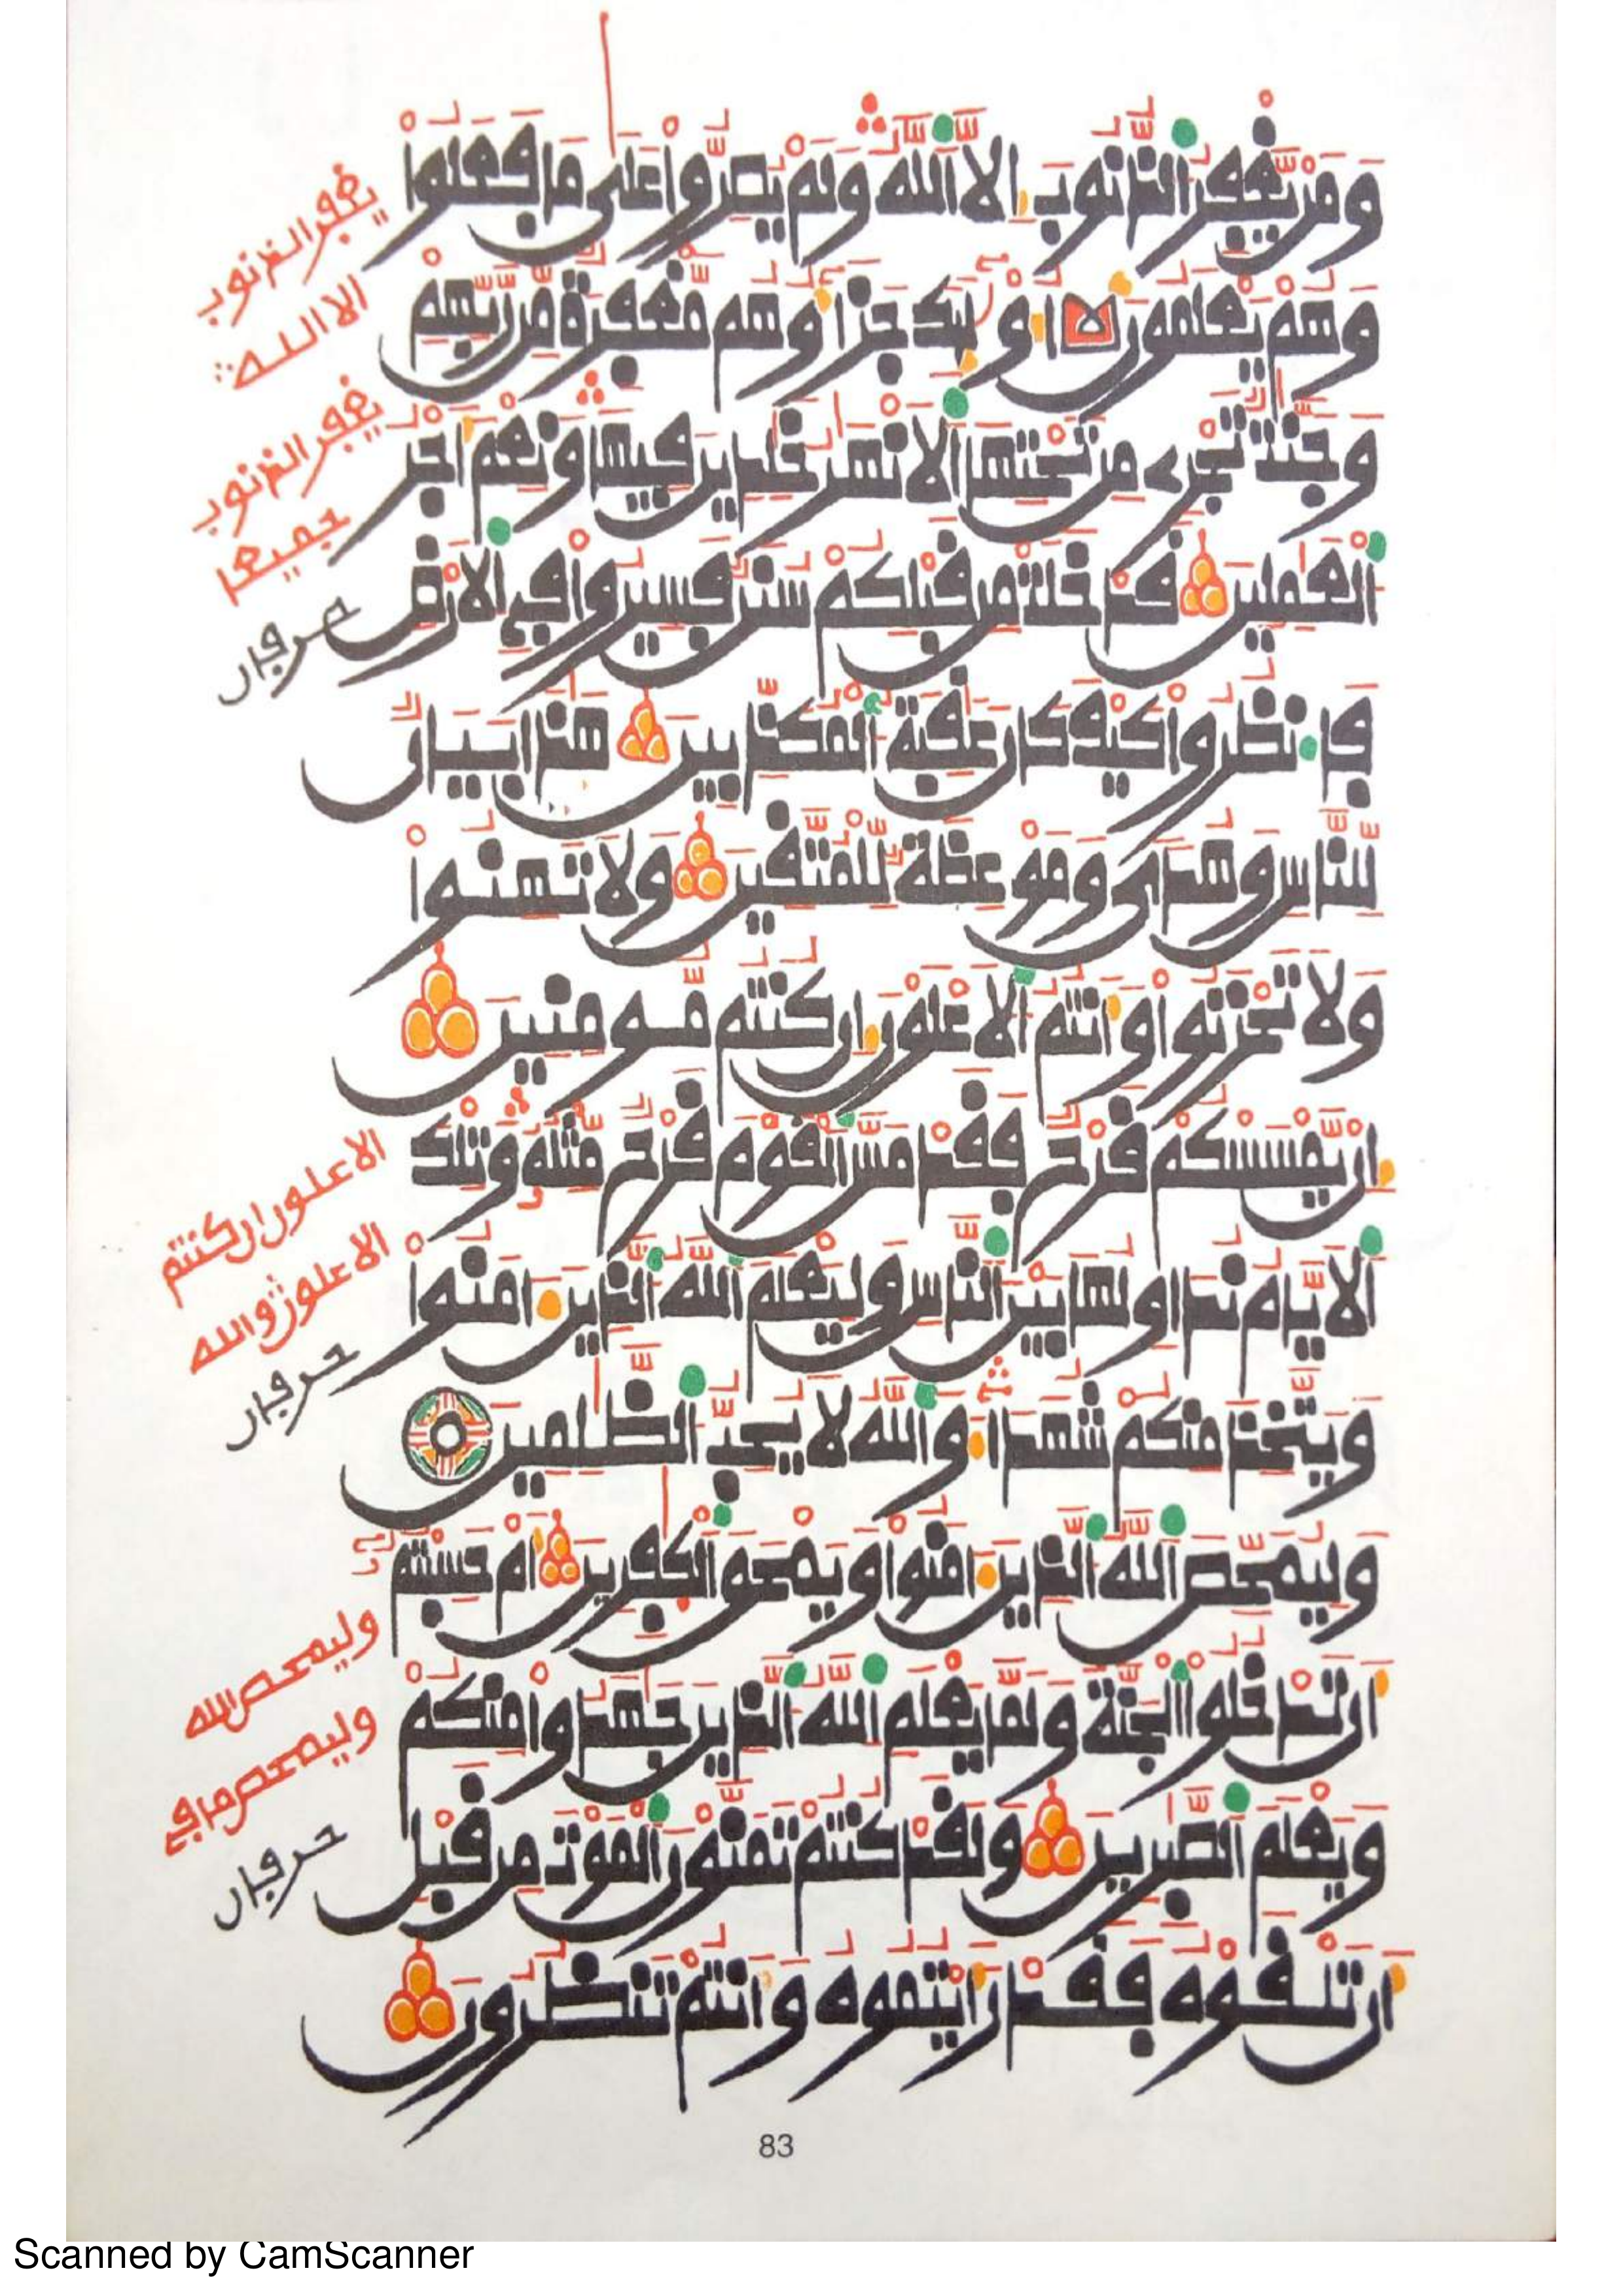 وَمَنْ يَّغْفِرُ الذُّنُوبَ إِلَّا اَللَّهُ وَلَمْ يُصِرُّواْ عَلَىٰ مَا فَعَلُواْ
وَهُمْ يَعْلَمُونَ أُوْلَٰٓئِكَ جَزَآؤُهُم مَّغْفِرَةٌ مِّن رَّبِّهِمْ
وَجَنَّٰتٌ تَجْرِے مِن تَحْتِهَا اَلَانْهَٰرُ خَٰلِدِينَ فِيهَا وَنِعْمَ أَجْرُ
اَلْعَٰمِلِينَ قَدْ خَلَتْ مِن قَبْلِكُمْ سُنَنٌ فَسِيرُواْ فِي اِلَارْضِ
فَانظُرُواْ كَيْفَ كَانَ عَٰقِبَةُ اُلْمُكَذِّبِينَ هَٰذَا بَيَانٌ
لِّلنَّاسِ وَهُدىً وَمَوْعِظَةٌ لِّلْمُتَّقِينَ وَلَا تَهِنُواْ
وَلَا تَحْزَنُواْ وَأَنتُمُ اُلَاعْلَوْنَ إِن كُنتُم مُّومِنِينَ
إِنْ يَّمْسَسْكُمْ قَرْحٌ فَقَدْ مَسَّ اَلْقَوْمَ قَرْحٌ مِّثْلُهُۥ وَتِلْكَ
اَلَايَّامُ نُدَاوِلُهَا بَيْنَ اَلنَّاسِ وَلِيَعْلَمَ اَللَّهُ اُلذِينَ ءَامَنُواْ
وَيَتَّخِذَ مِنكُمْ شُهَدَآءَ وَاللَّهُ لَا يُحِبُّ اُلظَّٰلِمِينَ
وَلِيُمَحِّصَ اَللَّهُ اُلذِينَ ءَامَنُواْ وَيَمْحَقَ اَلْكٰفِرِينَ أَمْ حَسِبْتُمُۥٓ
أَن تَدْخُلُواْ اُلْجَنَّةَ وَلَمَّا يَعْلَمِ اِللَّهُ اُلذِينَ جَٰهَدُواْ مِنكُمْ
وَيَعْلَمَ اَلصَّٰبِرِينَ وَلَقَدْ كُنتُمْ تَمَنَّوْنَ اَلْمَوْتَ مِن قَبْلِ
أَن تَلْقَوْهُ فَقَدْ رَأَيْتُمُوهُ وَأَنتُمْ تَنظُرُونَ
يغفر الذنوب
الا الله
يغفر الذنوب
جميعا
حرفان
الاعلون ان كنتم
الاعلون والله
حرفان
وليمحص الله
وليمحص ما في
حرفان
83
Scanned by CamScanner